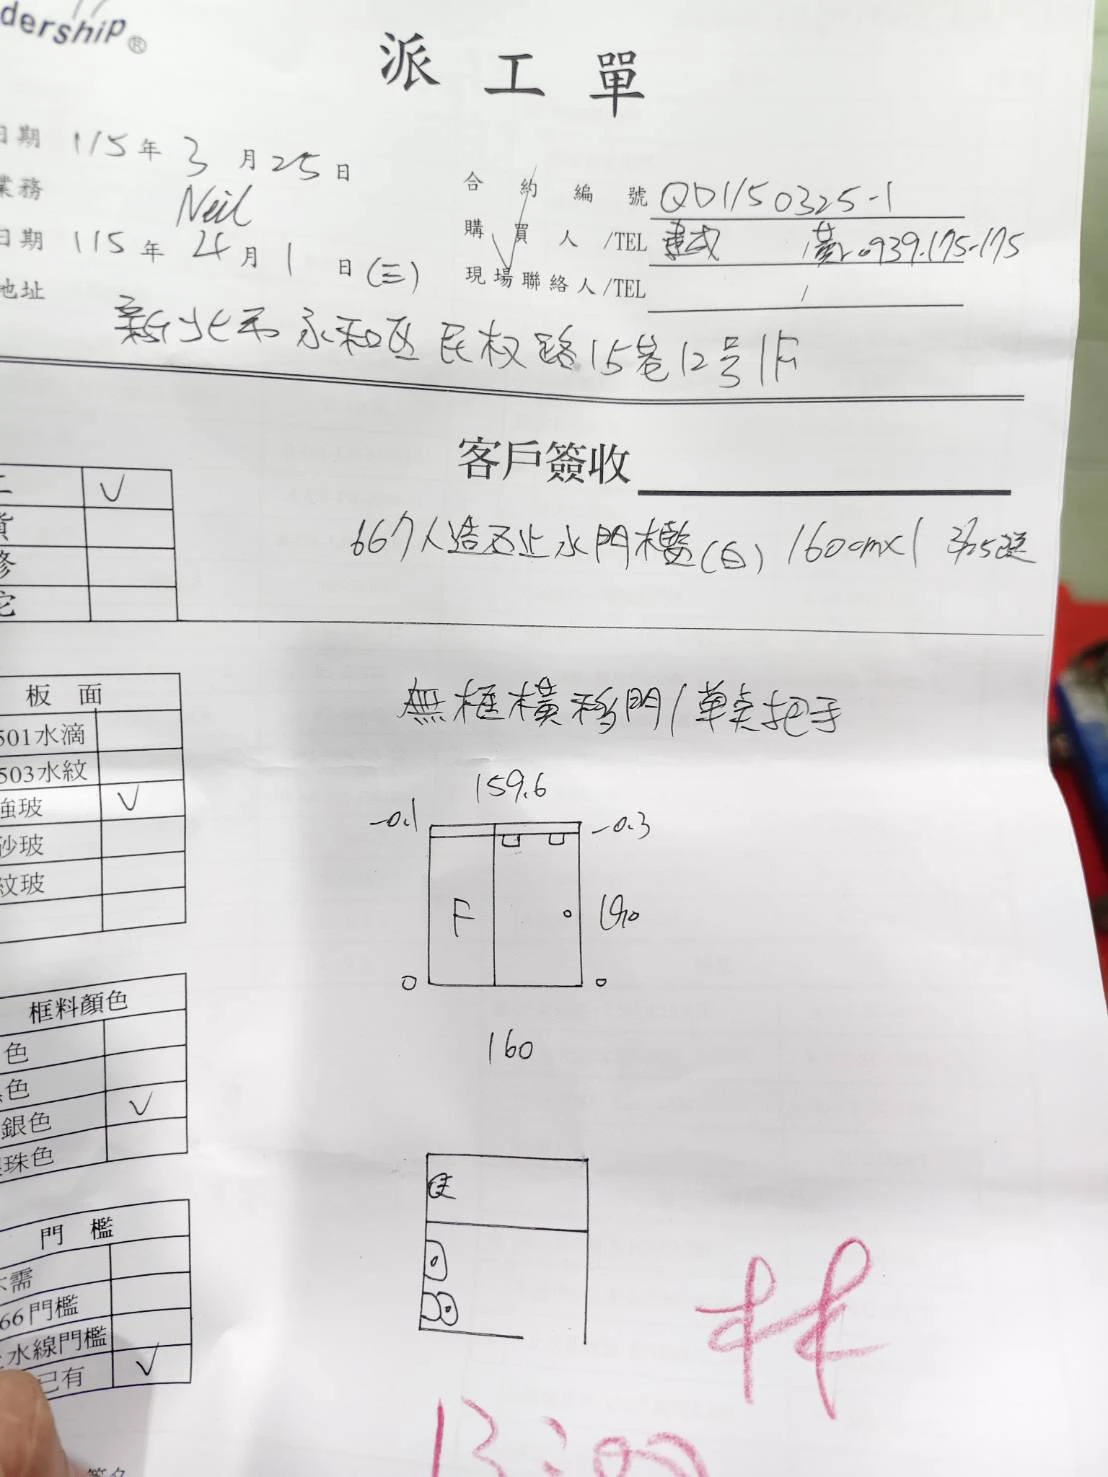 dership®
派工單
日期 115年3月25日
業務 Neil
合約編號 QD1150325-1
日期 115年4月1日(三)
購買人/TEL 0939.175-175
現場聯絡人/TEL /
地址 新北市永和区民权路15巷12号1F
客戶簽收
V
貨
修
它
667人造石止水門檻(白) 160cmx1 3/25送
板面
501水滴
503水紋
強玻 V
砂玻
紋玻
無框橫移門/單夾把手
159.6
-0.1
-0.3
F
190
0
0
160
框料顏色
色
色
銀色 V
珠色
門檻
需
66門檻
水線門檻
已有 V
林
13:00
簽名